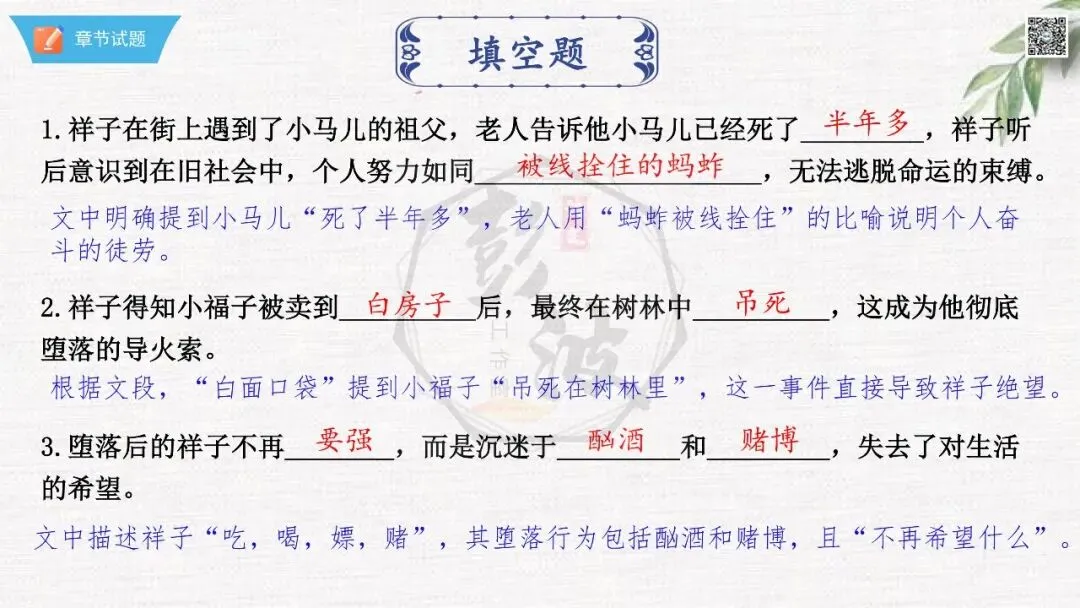 章节试题
填空题
1. 祥子在街上遇到了小马儿的祖父，老人告诉他小马儿已经死了 半年多 ，祥子听
后意识到在旧社会中，个人努力如同 被线拴住的蚂蚱 ，无法逃脱命运的束缚。
文中明确提到小马儿“死了半年多”，老人用“蚂蚱被线拴住”的比喻说明个人奋
斗的徒劳。
2. 祥子得知小福子被卖到 白房子 后，最终在树林中 吊死 ，这成为他彻底
堕落的导火索。
根据文段，“白面口袋”提到小福子“吊死在树林里”，这一事件直接导致祥子绝望。
3. 堕落后的祥子不再 要强 ，而是沉迷于 酗酒 和 赌博 ，失去了对生活
的希望。
文中描述祥子“吃，喝，嫖，赌”，其堕落行为包括酗酒和赌博，且“不再希望什么”。